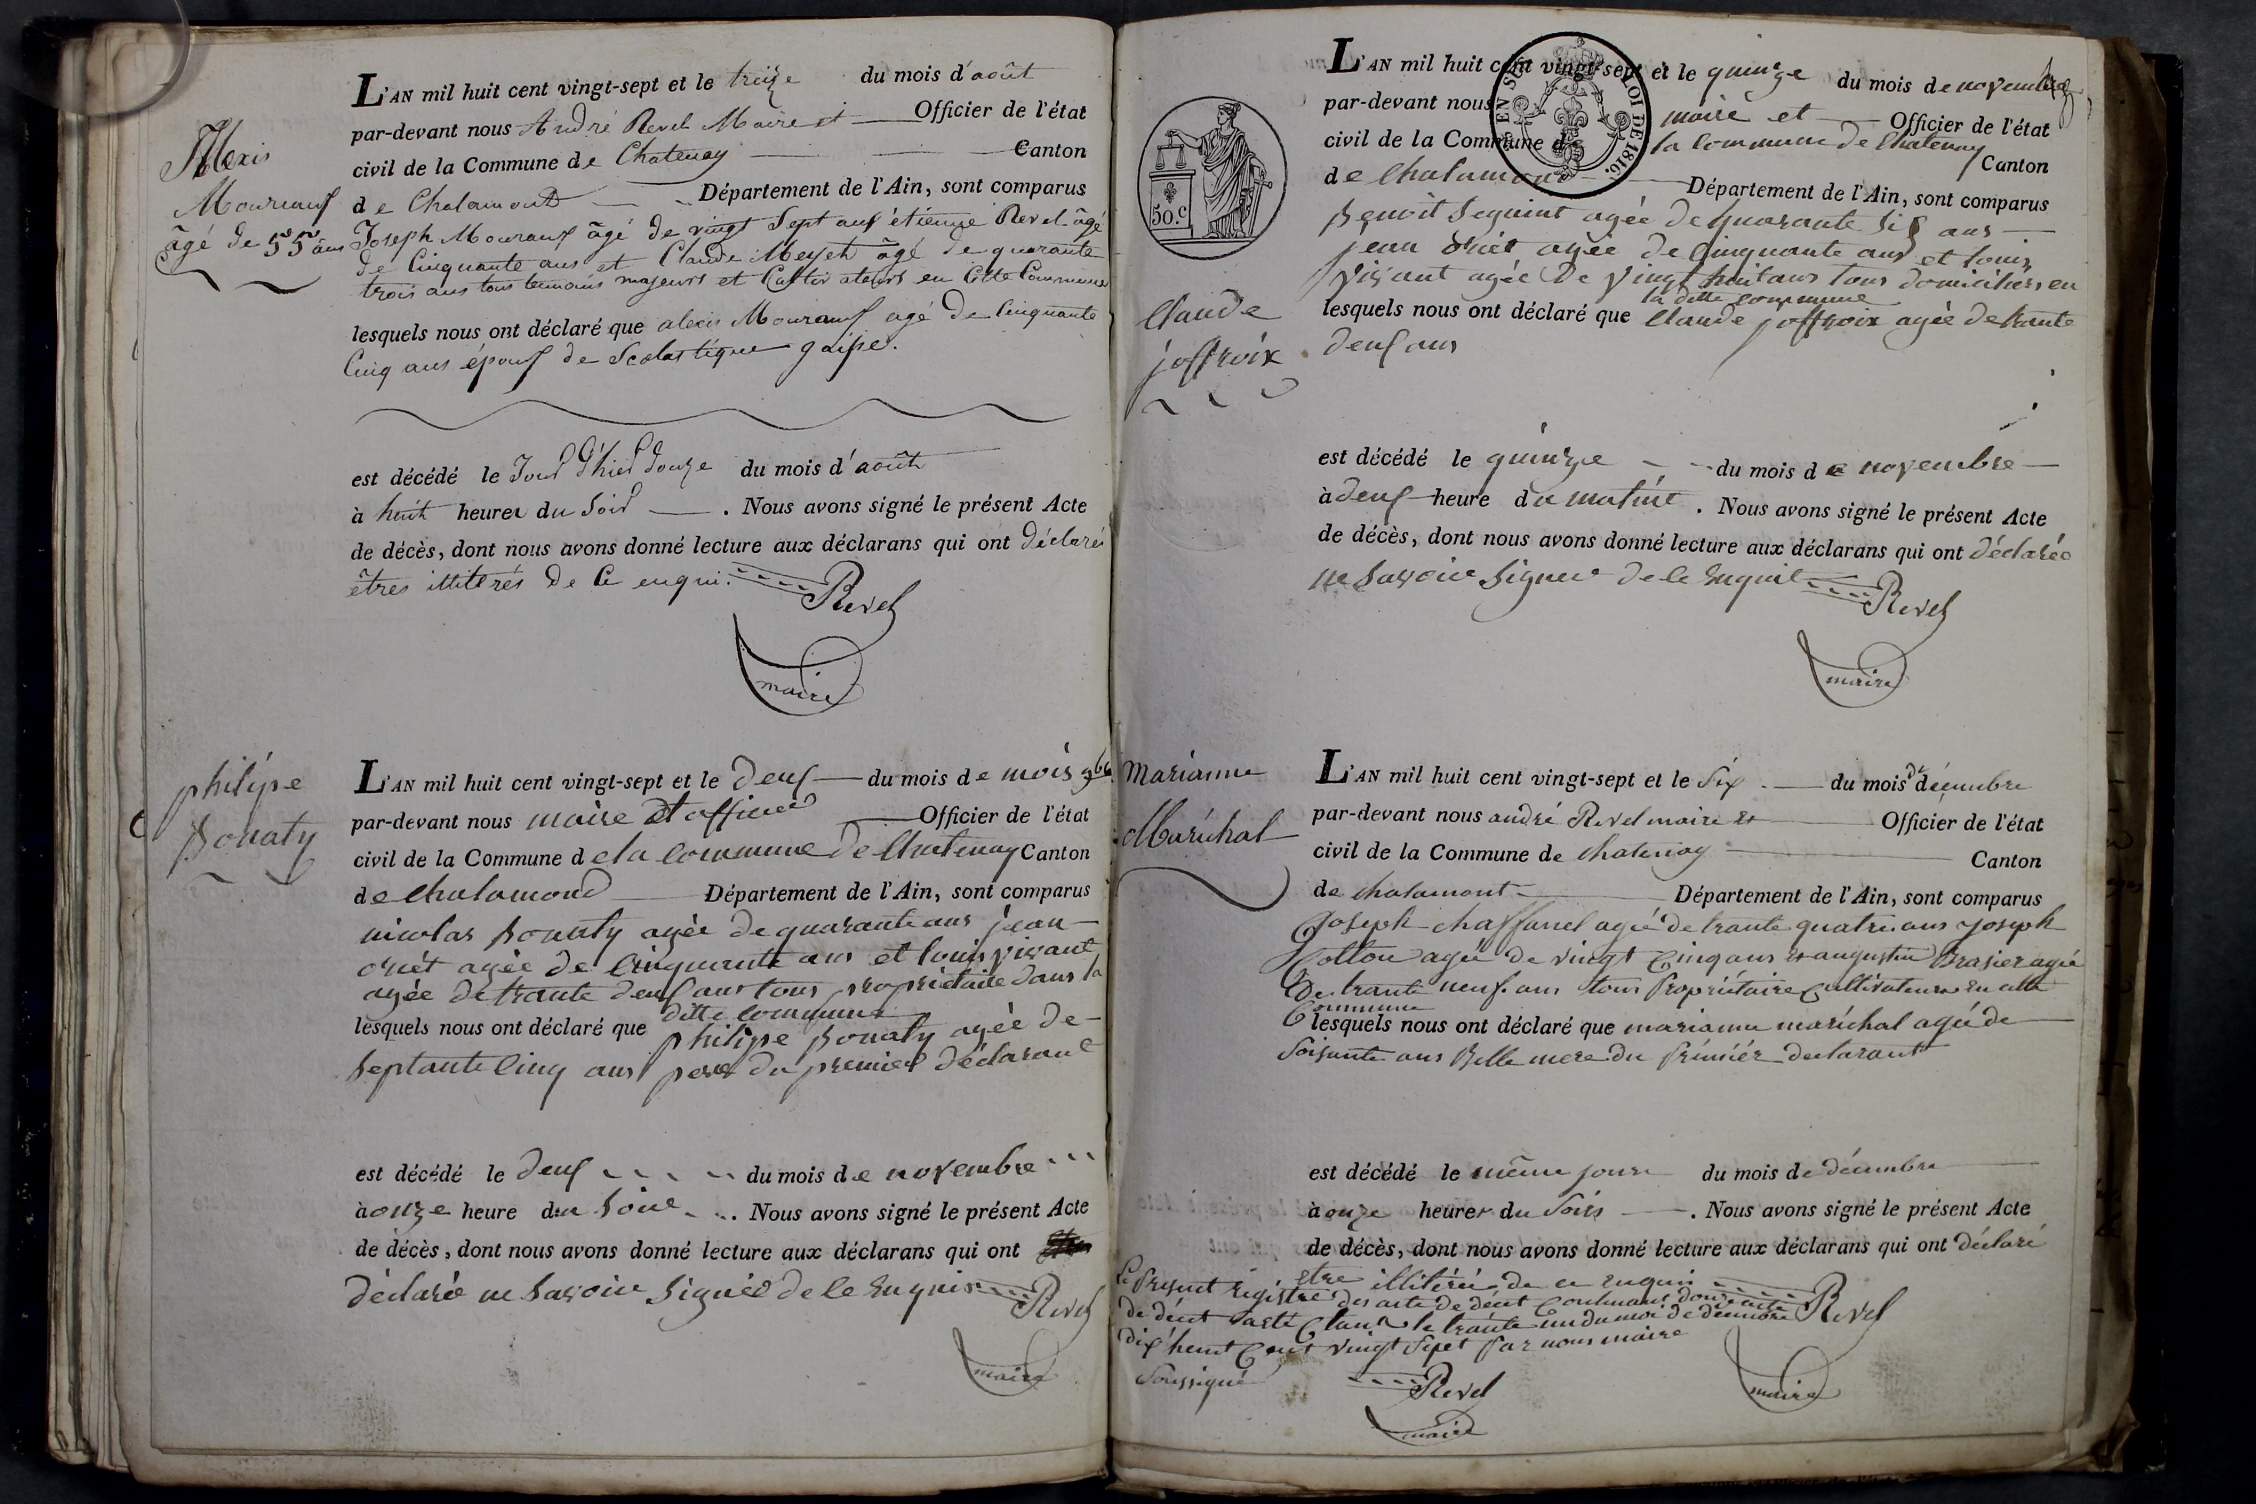 Alexis
Mouraux
âgé de 55 ans
L'AN mil huit cent vingt-sept et le treize du mois d'août
par-devant nous André Revel Maire et Officier de l'état
civil de la Commune de Chatenay Canton
de Chalamont Département de l'Ain, sont comparus
Joseph Mouraux âgé de vingt Sept ans étienne Revel âgé
de Cinquante ans et Claude Meyet âgé de quarante
trois ans tous témoins majeurs et Cultivateurs en Cette Commune
lesquels nous ont déclaré que alexis Mouraux agé de Cinquante
Cinq ans époux de Scolastique
est décédé le Jour d'hier douze du mois d'août
à huit heures du Soir . Nous avons signé le présent Acte
de décès, dont nous avons donné lecture aux déclarans qui ont déclaré
êtres illiterés de Ce enqui.
Revel
maire
philipe
Bonaty
L'AN mil huit cent vingt-sept et le deux du mois de mois 9bre
par-devant nous maire et officier Officier de l'état
civil de la Commune de la commune de Chatenay Canton
de Chalamond Département de l'Ain, sont comparus
nicolas Bonaty agée de quarante ans jean
agée de Cinquante ans et louis vivant
agée de trante deux ans tous propriétaire dans la
ditte commune
lesquels nous ont déclaré que philipe Bonaty agée de
Septante Cinq ans pere du premier déclarant
est décédé le deux du mois de novembre
à onze heure du Soire . Nous avons signé le présent Acte
de décès, dont nous avons donné lecture aux déclarans qui ont
déclarée ne Savoire Signée de le Enquis
Revel
maire
50.c
EN SUS LOI DE 1816.
Claude
joffroix
L'AN mil huit cent vingt-sept et le quinze du mois de novembre
par-devant nous maire et Officier de l'état
civil de la Commune de la commune de Chatenay Canton
de Chalamont Département de l'Ain, sont comparus
Benoit Seguint agée de quarante Six ans
jean agée de Cinquante ans et louis
vivant agée de vingt huit ans tous domiciliés en
la ditte commune
lesquels nous ont déclaré que Claude joffroix agée de trante
deux ans
est décédé le quinze du mois de novembre
à deux heure du matine . Nous avons signé le présent Acte
de décès, dont nous avons donné lecture aux déclarans qui ont déclarée
ne Savoire Signer de le Enquit
Revel
maire
Marianne
Maréchal
L'AN mil huit cent vingt-sept et le Six du mois de décembre
par-devant nous andré Revel maire et Officier de l'état
civil de la Commune de chatenay Canton
de chalamont Département de l'Ain, sont comparus
Joseph chaffanel agé de trante quatre ans Joseph
Cotton agé de vingt Cinq ans et augustin Brasier agé
De trante neuf ans tous Propriétaire Cultivateurs En cette
Commune
lesquels nous ont déclaré que marianne maréchal agé de
Soisante ans Belle mere du Prémiér declarant
est décédé le même jour du mois de décembre
à onze heures du Soir . Nous avons signé le présent Acte
de décès, dont nous avons donné lecture aux déclarans qui ont déclaré
etre illitéré de ce enquis
Revel
maire
Le Present Registre des acte de décet Contenant douze acte
de décet arété Clau le trante un du moi de décembre
dix huit Cent vingt Sept Par nous maire
Soussigné
Revel
maire